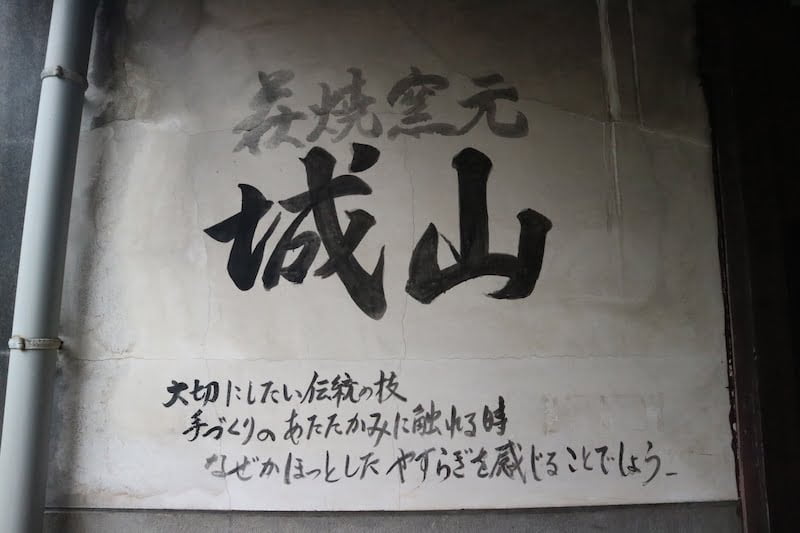 萩焼窯元
城山
大切にしたい伝統の技
手づくりのあたたかみに触れる時
なぜかほっとしたやすらぎを感じることでしょう_